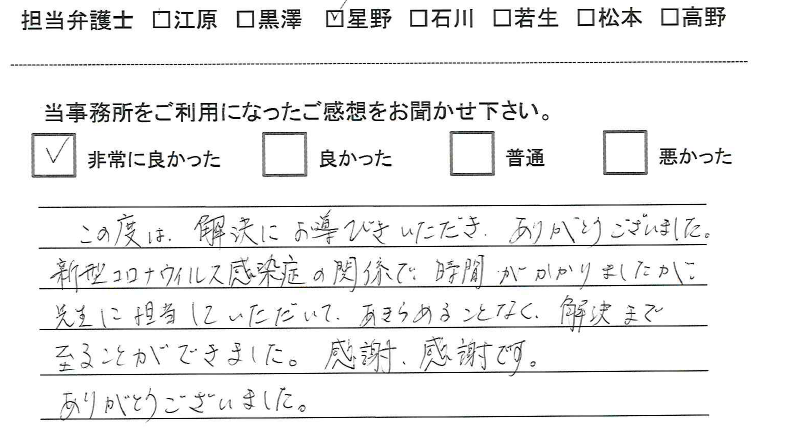 担当弁護士 □江原 □黒澤 ☑星野 □石川 □若生 □松本 □高野
当事務所をご利用になったご感想をお聞かせ下さい。
☑ 非常に良かった □ 良かった □ 普通 □ 悪かった
この度は、解決にお導びきいただき、ありがとうございました。
新型コロナウィルス感染症の関係で、時間がかかりましたが、
先生に担当していただいて、あきらめることなく、解決まで
至ることができました。感謝、感謝です。
ありがとうございました。